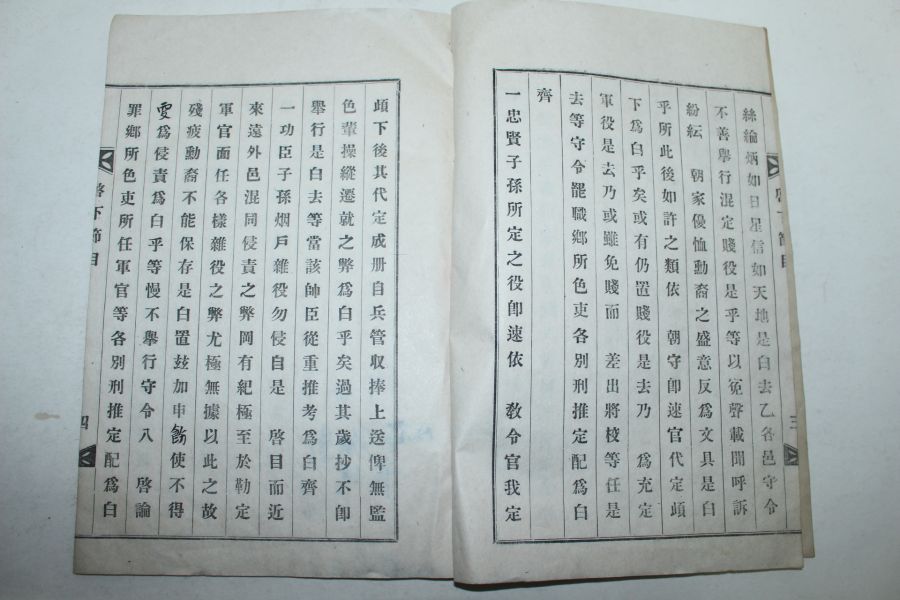 絲綸炳如日星信如天地是白去乙各邑守令
不善擧行混定賤役是乎等以寃聲載聞呼訴
紛紜 朝家優恤勳裔之盛意反爲文具是白
乎所此後如許之類依 朝守卽速官代定頉
下爲白乎矣或有仍置賤役是去乃 爲充定
軍役是去乃或雖免賤而 差出將校等任是
去等守令罷職鄕所色吏各別刑推定配爲白
齊
一忠賢子孫所定之役卽速依 敎令官我定
三
頉下後其代定成册自兵管収捧上送俾無監
色輩操縱遷就之弊爲白乎矣過其歲抄不卽
擧行是白去等當該帥臣從重推考爲白齊
一功臣子孫烟戶雜役勿侵自是 啓目而近
來遠外邑混同侵責之弊罔有紀極至於勒定
軍官面任各樣雜役之弊尤極無據以此之故
殘疲勳裔不能保存是白置玆加申飭使不得
更爲侵責爲白乎等慢不擧行守令八 啓論
罪鄕所色吏所任軍官等各別刑推定配爲白
啓下節目
四